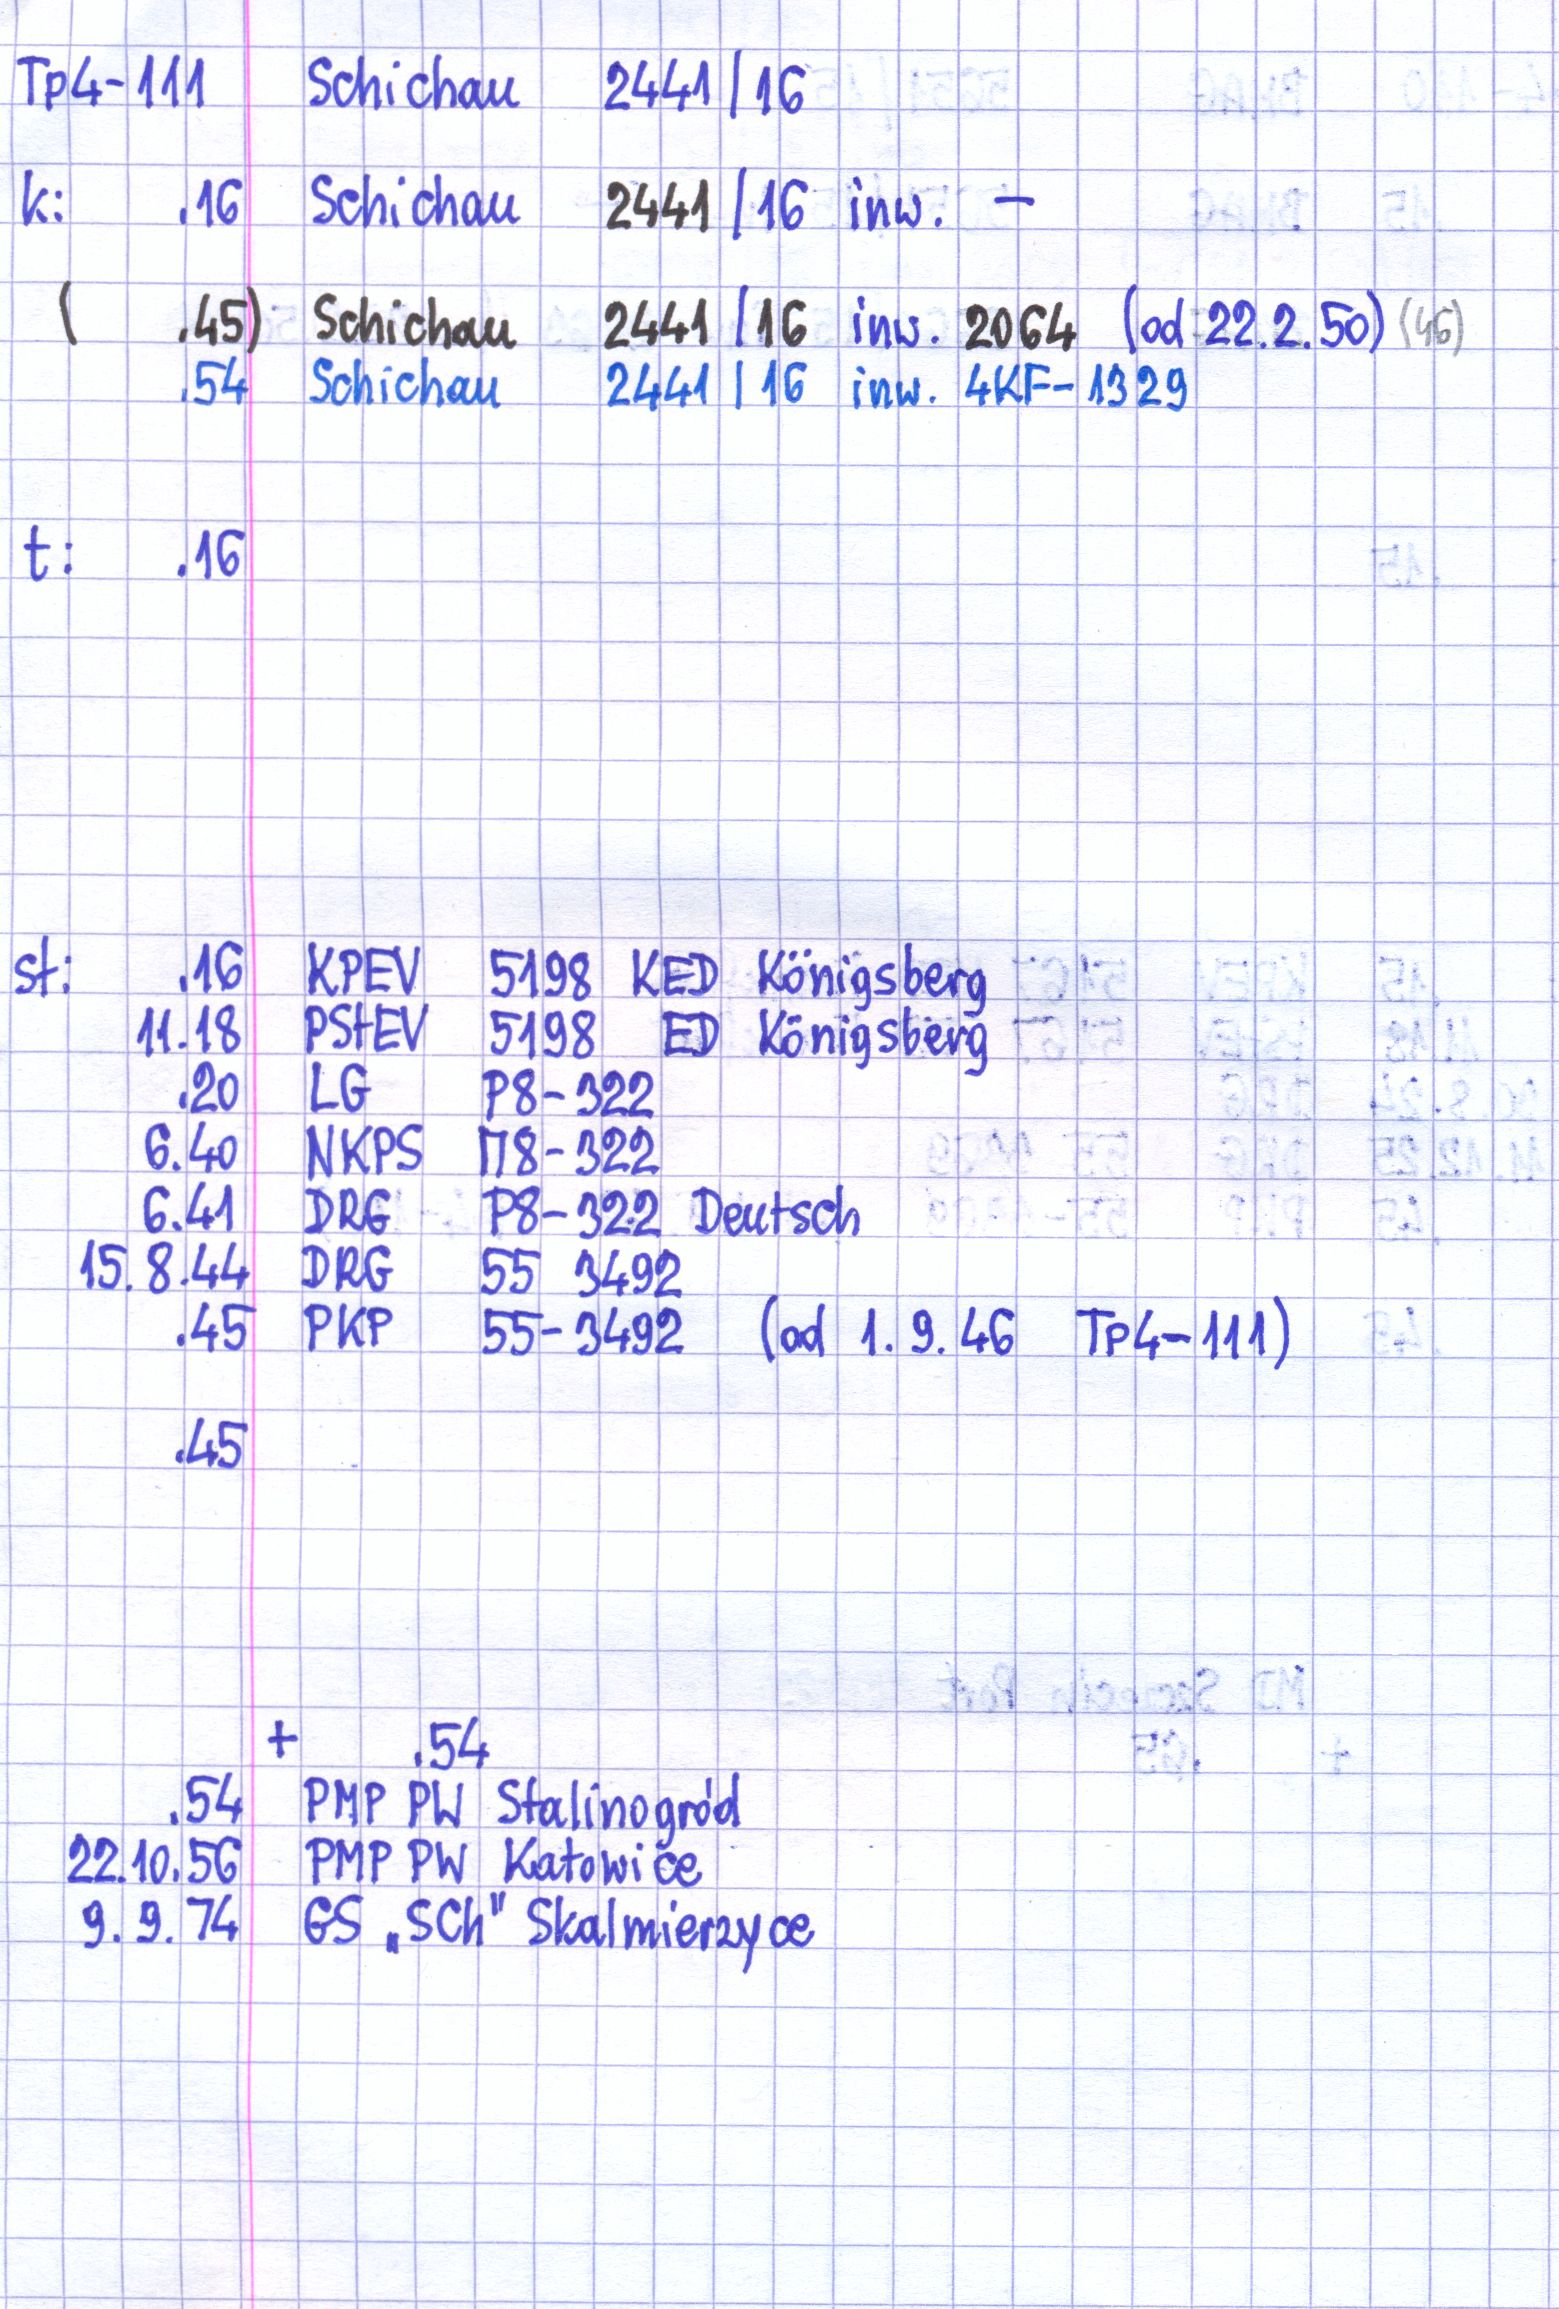 Tp4-111 Schichau 2441/16
k: .16 Schichau 2441/16 inw. –
( .45) Schichau 2441/16 inw. 2064 (od 22.2.50) (46)
.54 Schichau 2441/16 inw. 4KF-1329
t: .16
st: .16 KPEV 5198 KED Königsberg
11.18 PStEV 5198 ED Königsberg
.20 LG P8-322
6.40 NKPS П8-322
6.41 DRG P8-322 Deutsch
15.8.44 DRG 55 3492
.45 PKP 55-3492 (od 1.9.46 Tp4-111)
.45
+ .54
.54 PMP PW Stalinogród
22.10.56 PMP PW Katowice
9.9.74 GS „SCh" Skalmierzyce